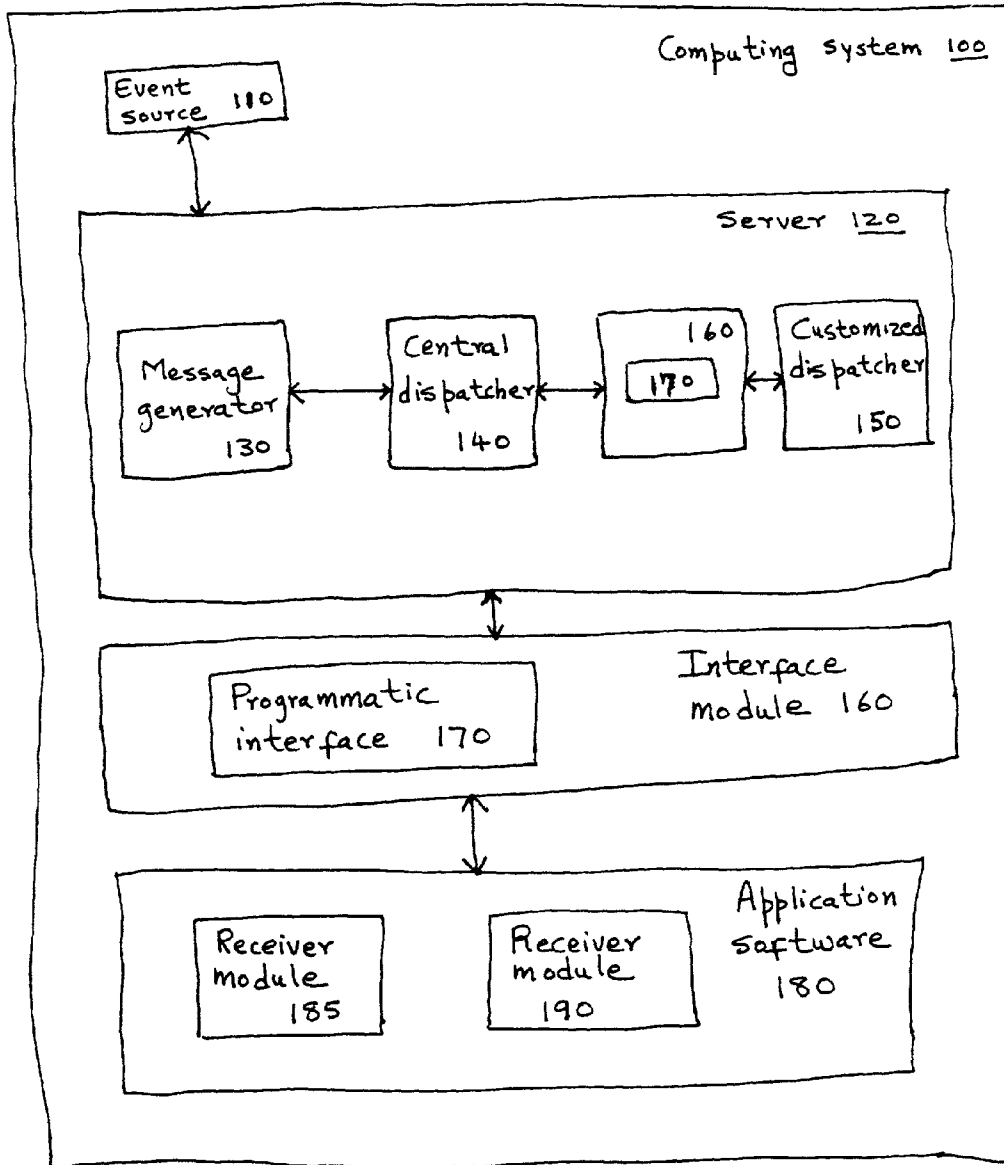 Computing system 100
Event
source 110
Server 120
Message
generator
130
Central
dispatcher
140
160
170
Customized
dispatcher
150
Programmatic
interface 170
Interface
module 160
Application
software
180
Receiver
module
185
Receiver
module
190